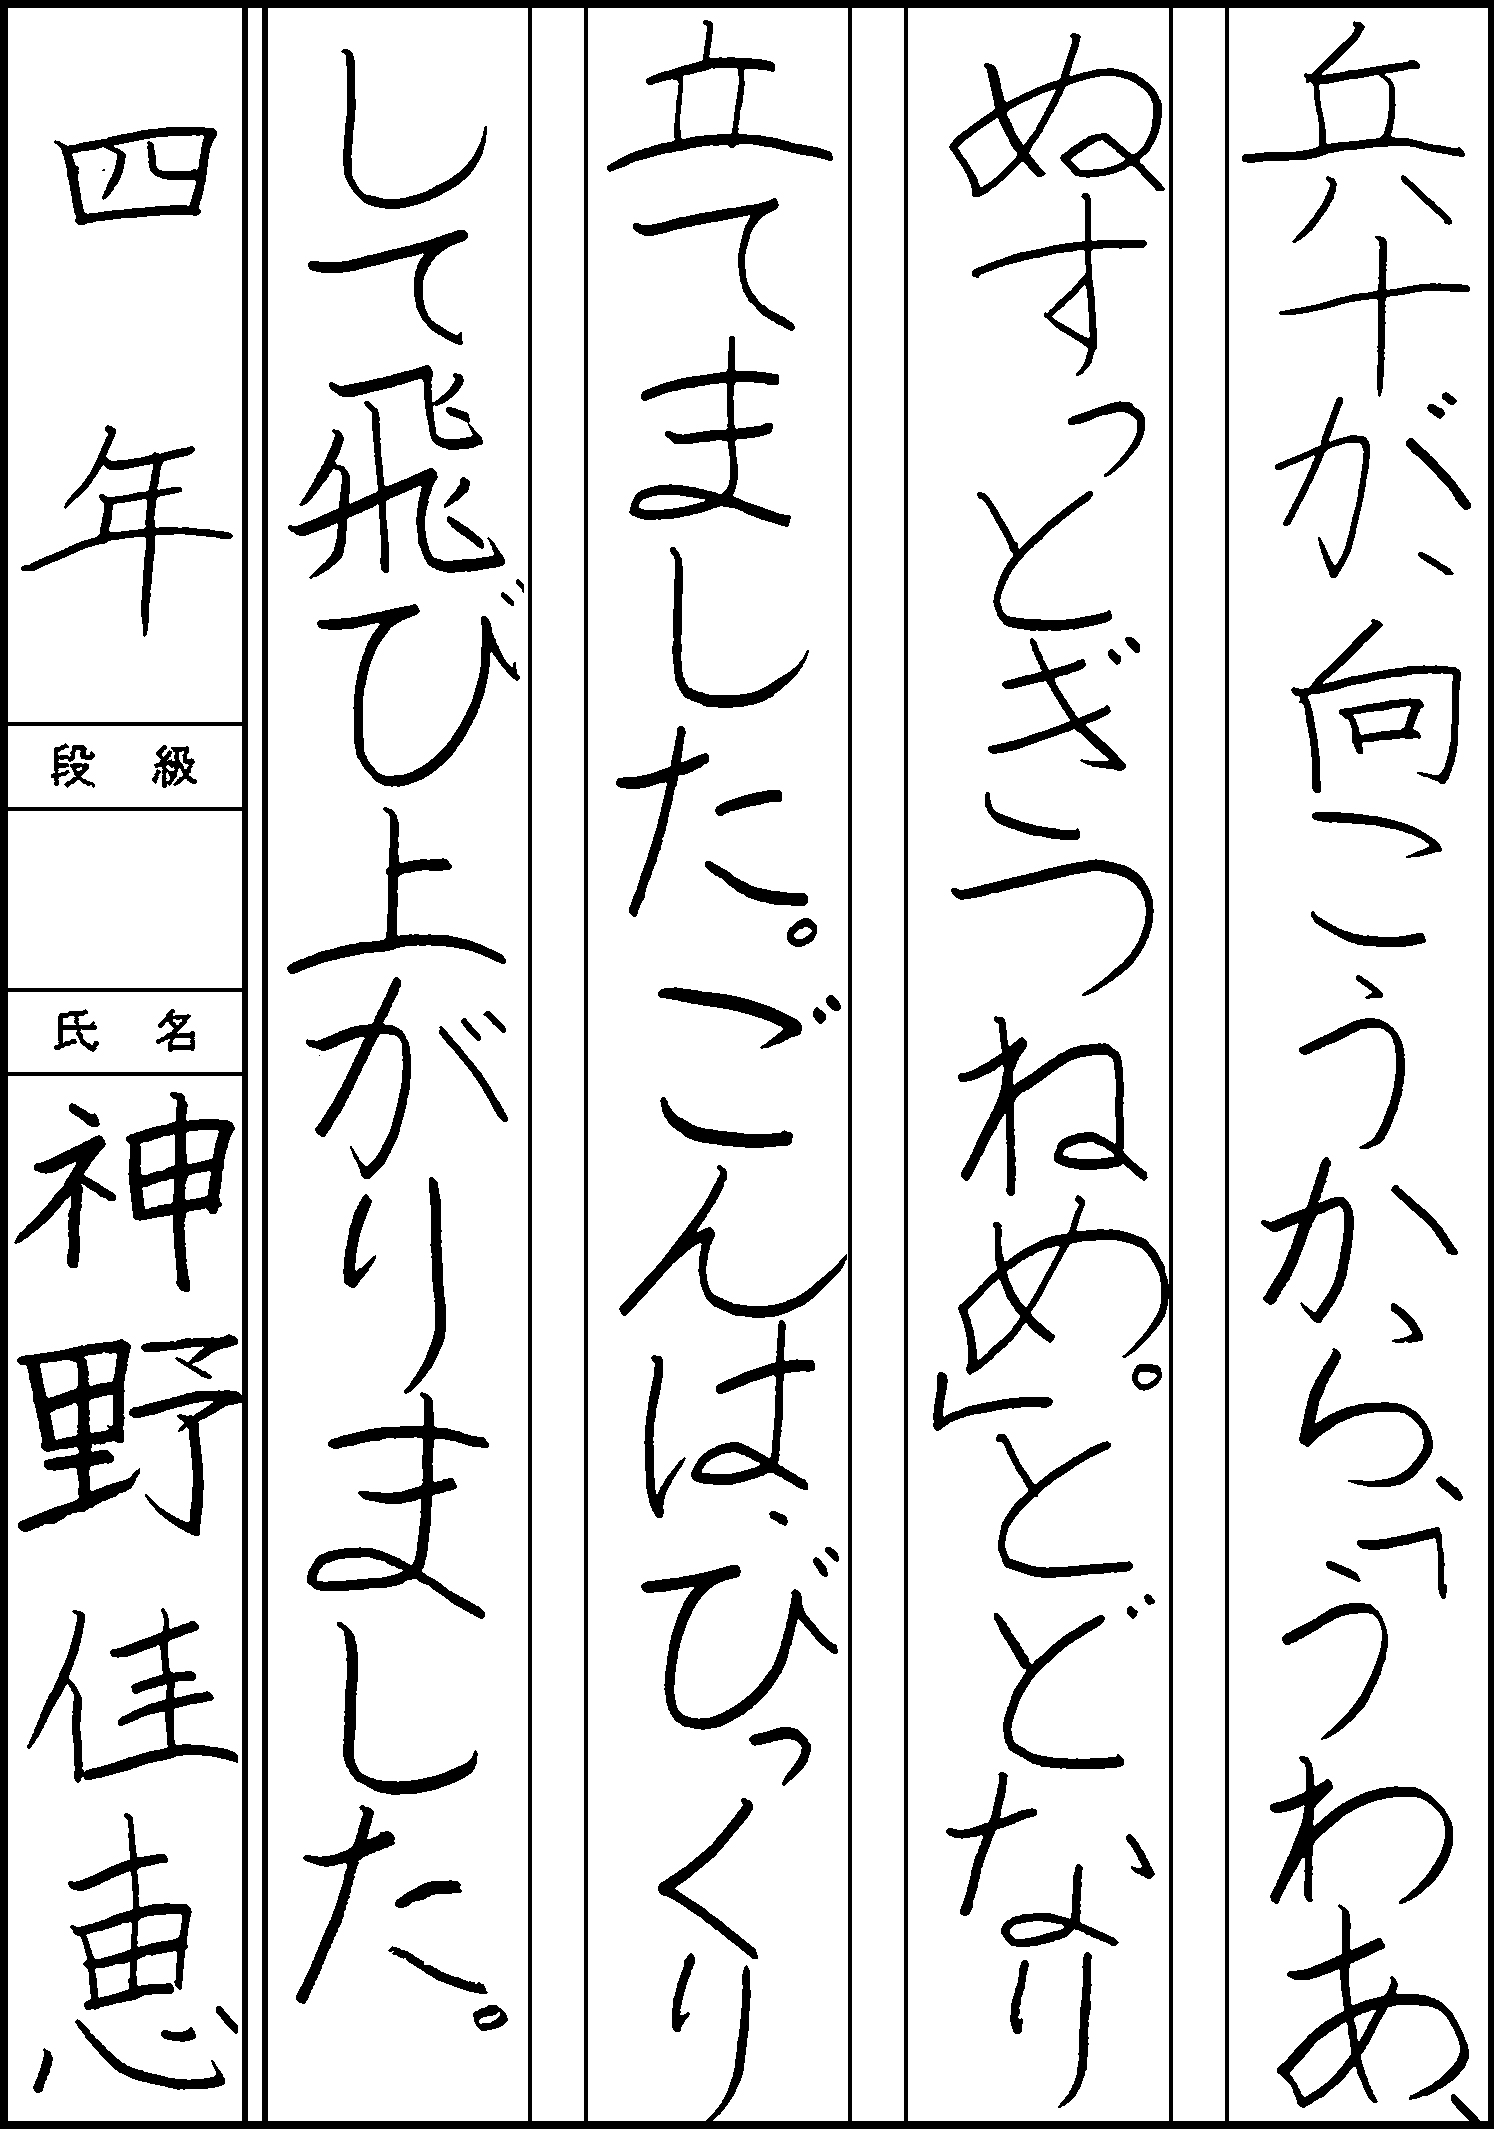 兵十が、向こうから、「うわあ、
ぬすっとぎつねめ。」とどなり
立てました。ごんは、びっくり
して飛び上がりました。
四年
段級
氏名
神野佳恵